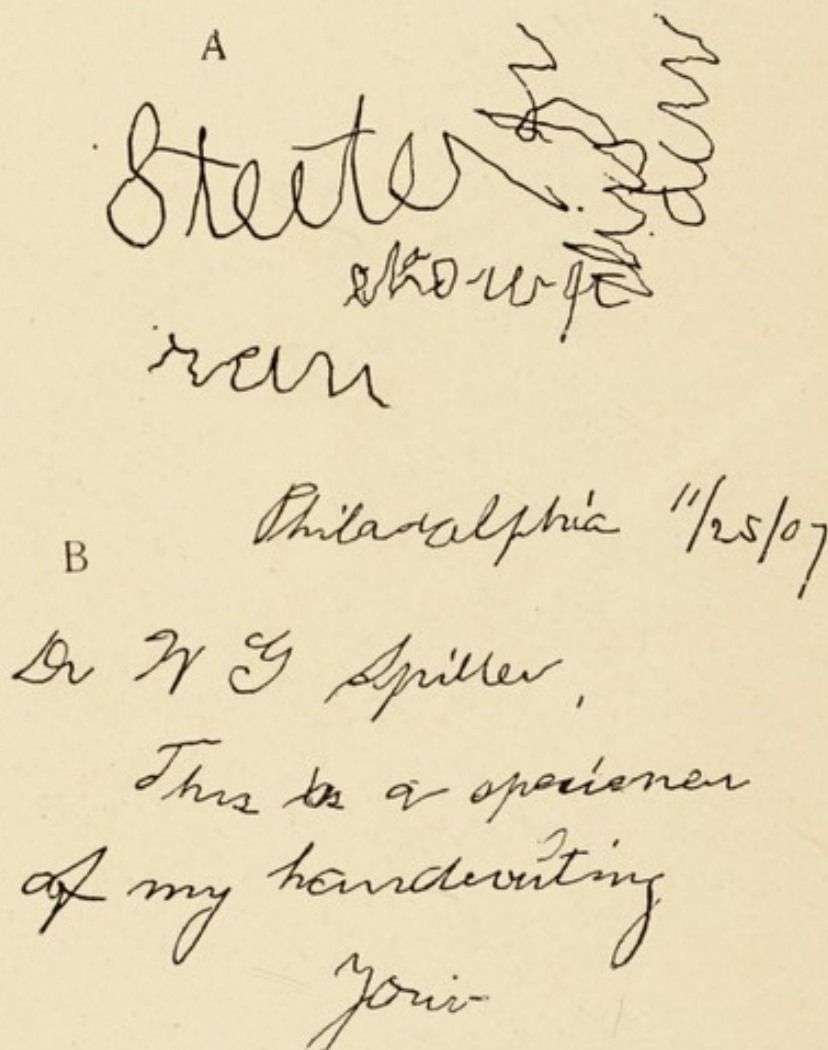 A
Steeter
ran
Philadalphia 11/25/07
B
Dr W G Spiller,
This is a specimen
of my handwriting
Your